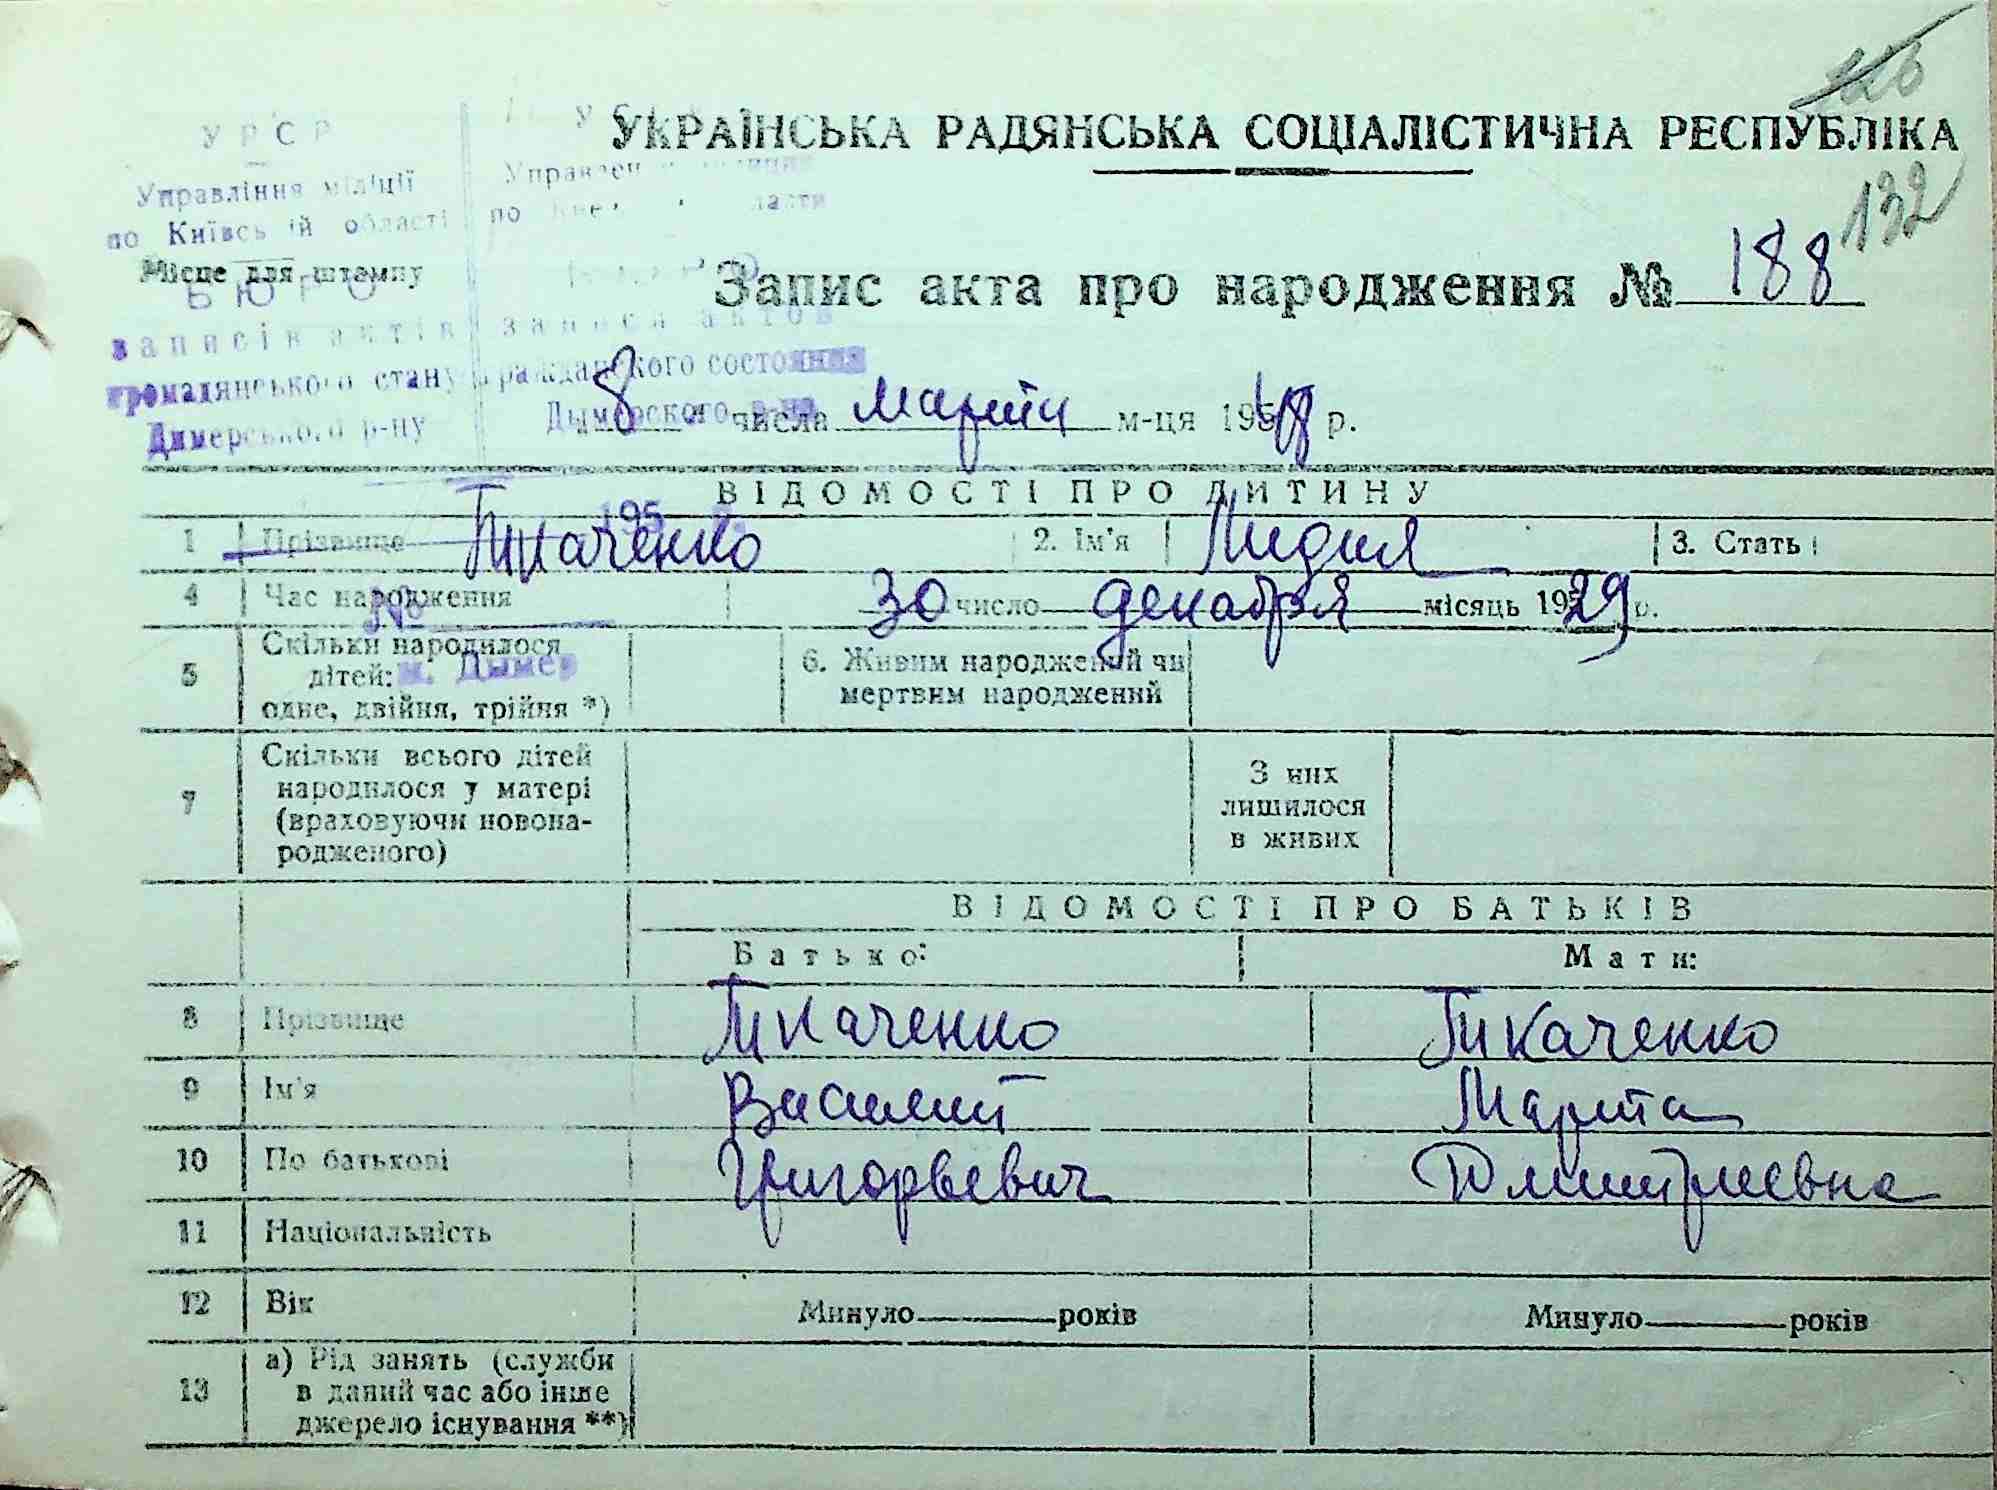 УКРАЇНСЬКА РАДЯНСЬКА СОЦІАЛІСТИЧНА РЕСПУБЛІКА
132
У Р С Р
Управління міліції
по Київській області
Місце для штампу
БЮРО
записів актів записи актов
громадянського стану гражданского состояния
Димерського р-ну Дымерского р-на
Запис акта про народження № 188
8 числа марта м-ця 195 р.
ВІДОМОСТІ ПРО ДИТИНУ
1 Прізвище Ткаченко 2. Ім'я Лидия 3. Стать
195
4 Час народження 30 число декабря місяць 1929 р.
№
5 Скільки народилося
дітей:
одне, двійня, трійня *)
м. Дымер
6. Живим народжений чи
мертвим народжений
7 Скільки всього дітей
народилося у матері
(враховуючи новона-
родженого)
З них
лишилося
в живих
ВІДОМОСТІ ПРО БАТЬКІВ
Батько: Мати:
8 Прізвище Ткаченко Ткаченко
9 Ім'я Василий Марита
10 По батькові Григорьевич Дмитриевна
11 Національність
12 Вік Минуло років Минуло років
13 а) Рід занять (служби
в даний час або інше
джерело існування **)